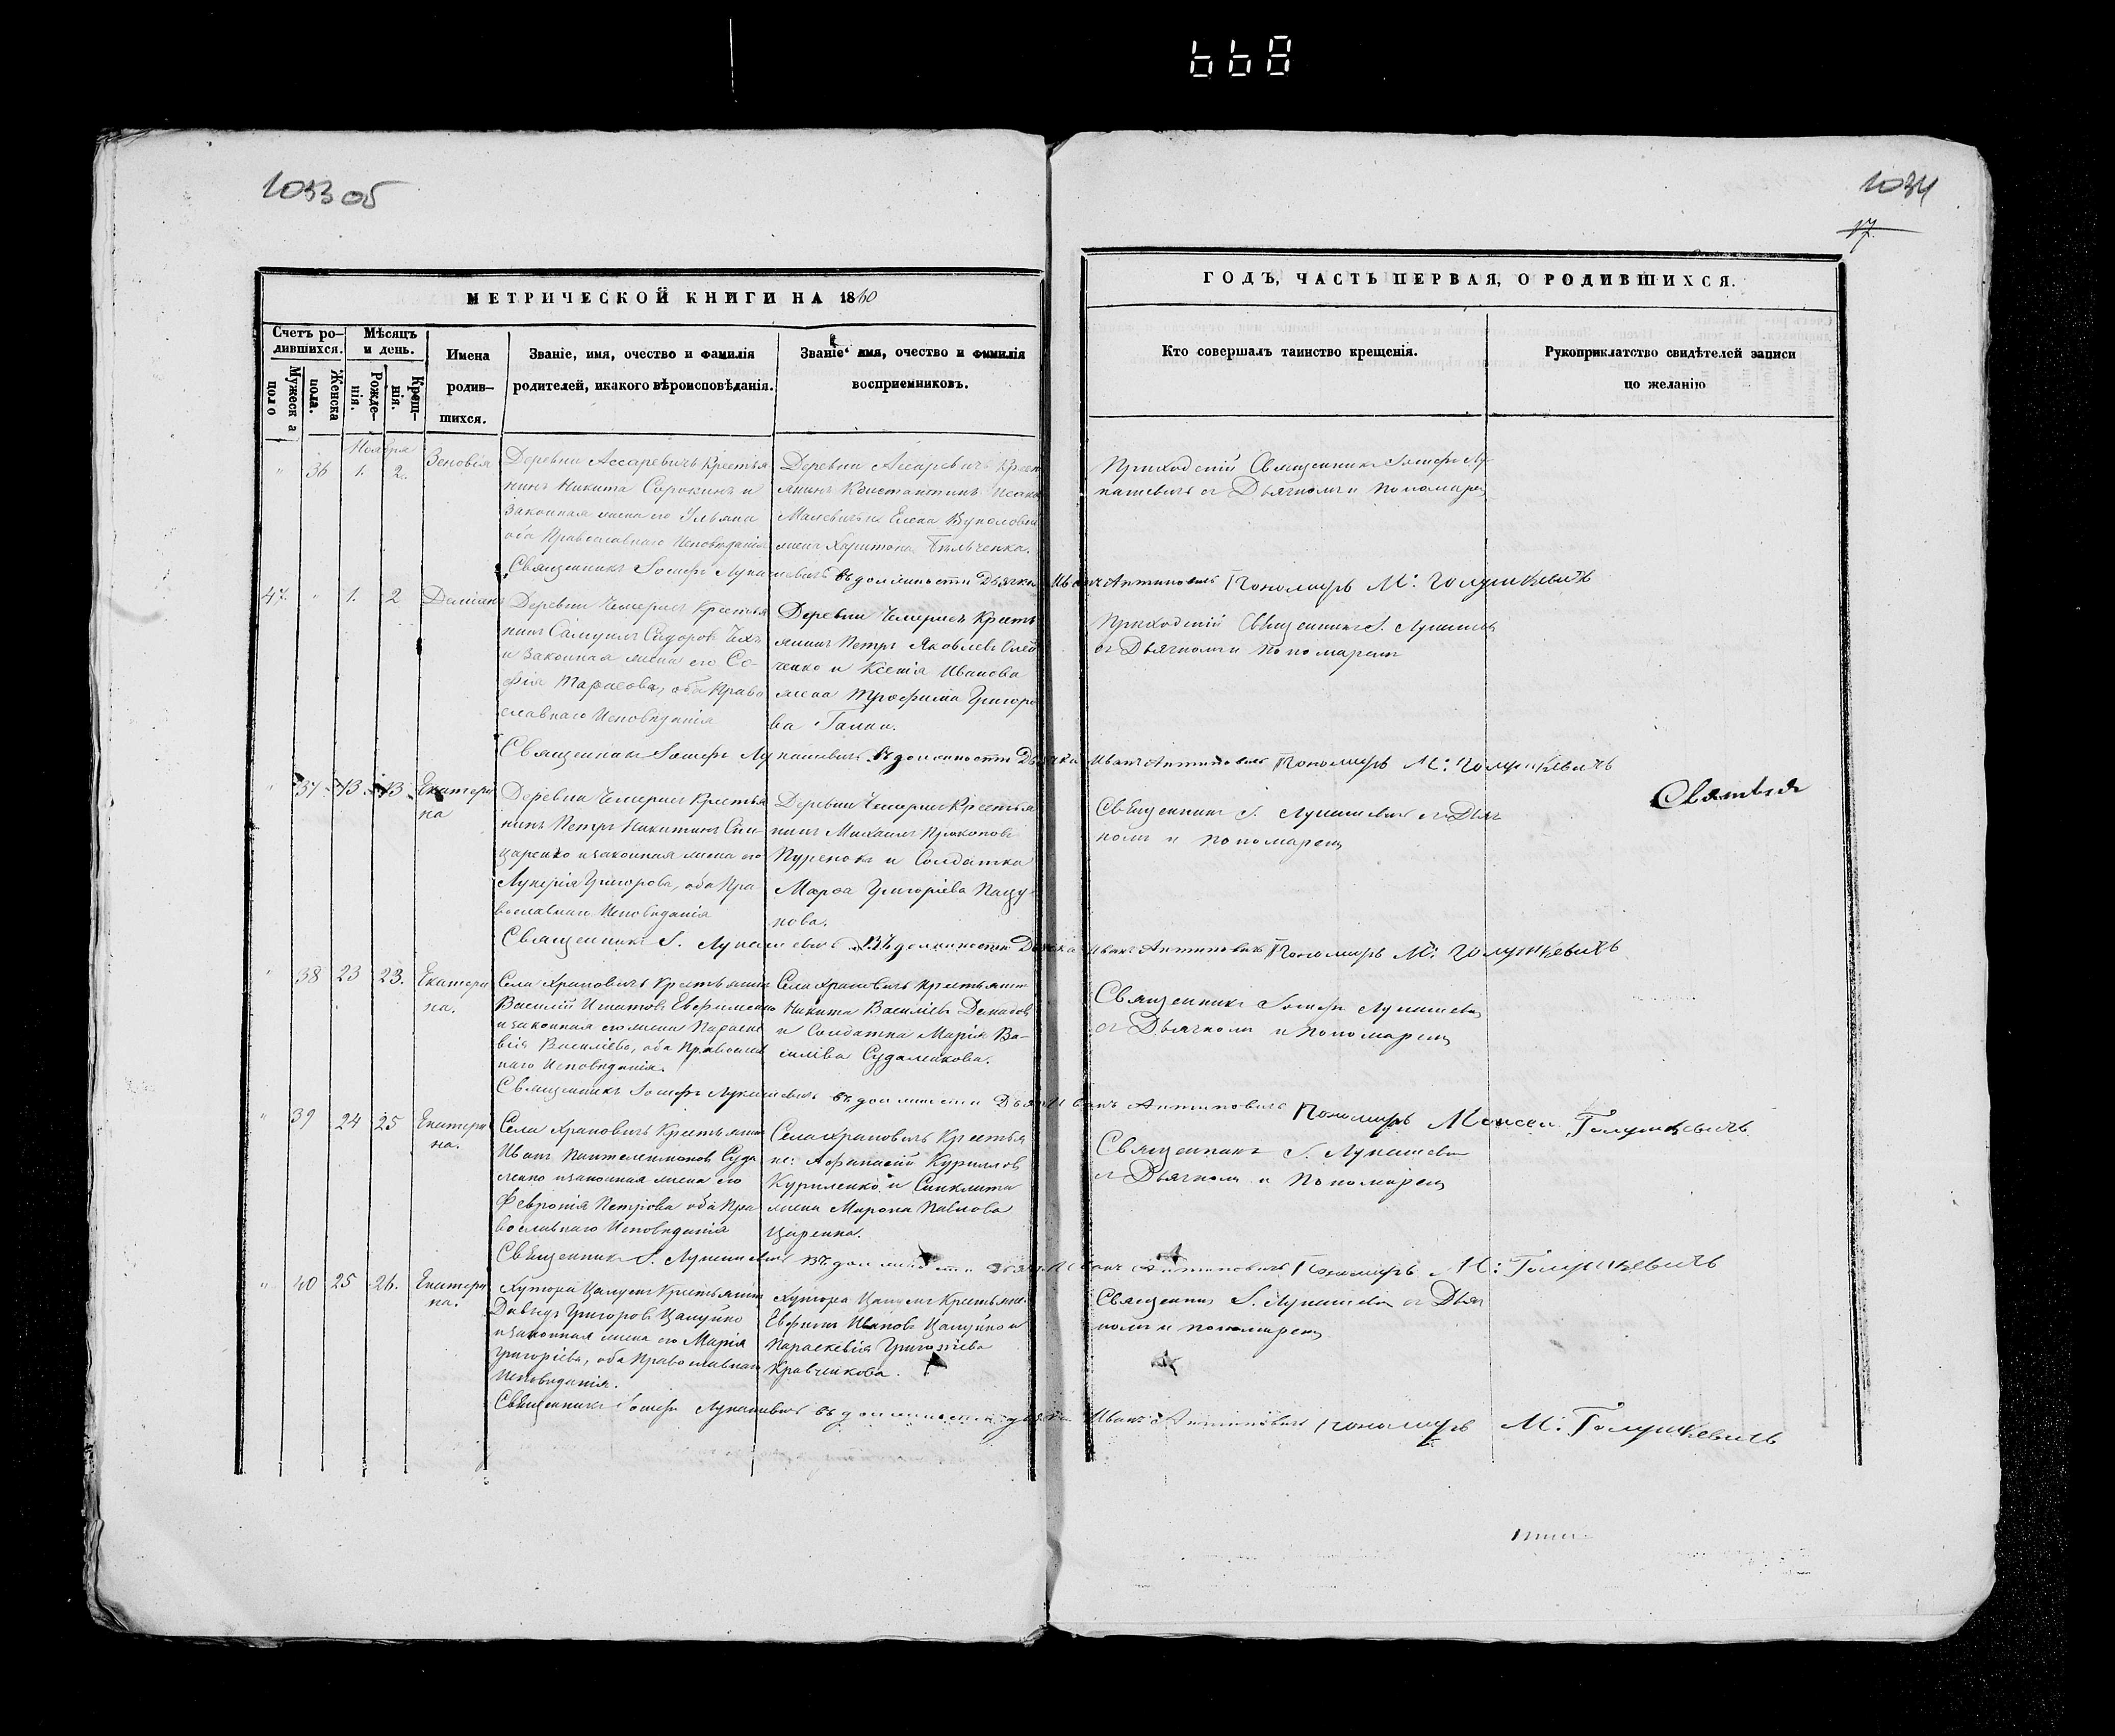 668
1033 об
1034
17.
МЕТРИЧЕСКОЙ КНИГИ НА 1860
ГОДЪ, ЧАСТЬ ПЕРВАЯ, О РОДИВШИХСЯ.
Счетъ ро-
дившихся.
Мужеска
поло
Женска
пола.
Мѣсяцъ
и день.
Рожде-
нія.
Крещ-
нія.
Имена
родив-
шихся.
Званіе, имя, очество и фамилія
родителей, икакого вѣроисповѣданія.
Званіе имя, очество и фимилія
восприемниковъ.
Кто совершалъ таинство крещенія.
Рукоприклатство свидѣтелей записи
по желанію
Ноября
" 36 1. 2. Зеновія
Деревни Ассаревичъ Крестья
нинъ Никита Сорокинъ и
законная жена его Ульяна
оба Православнаго Исповѣданія
Деревни Ассаревичъ Крест
янинъ Константинъ
жена Харитона Бѣльченка.
Приходскій Священникъ Іосифъ Лу
пашевичъ съ Дьячкомъ и Пономарем
Священникъ Іосифъ Лупашевичъ въ должности Дьячка Иванъ Антиповичъ Пономарь М: Голушкевичъ
47. " 1. 2 Деміанъ
Деревни Чемерисъ Крестья
нинъ Самуилъ Сидоровъ Чехъ
и законная жена его Со-
фія Тарасова, оба Право
славнаго Исповѣданія
Деревни Чемерисъ Кресть
янинъ Петръ Яковлевъ Олей
ченко и Ксенія Иванова
жена Трофима Григоро
ва Галки.
Приходскій Священникъ І. Лупашев
съ Дьячкомъ и Пономарем
Священникъ Іосифъ Лупашевичъ въ должности Дьячка Иванъ Антиповичъ Пономарь М: Голушкевичъ
" 37 13 13 Екатери
на
Деревни Чемерисъ Крестья
нинъ Петръ Никитинъ Сли-
царенко и законная жена его
Лукерія Григорова, оба Пра
вославнаго Исповѣданія
Деревни Чемерисъ Крестья
нинъ Михаилъ Прокоповъ
Пуренокъ и Солдатка
Марѳа Григоріева Пацу
нова.
Священникъ І. Лупашевичъ съ Дьяч
комъ и Пономарем
Святыя
Священникъ І. Лупашевичъ Въ должности Дьячка Иванъ Антиповичъ Пономарь М: Голушкевичъ
" 38 23 23. Екатери
на.
Села Храповичъ Крестьянин
Василій Игнатовъ Ефрименко
и законная его жена Параске
вія Василіева, оба Православ
наго Исповѣданія.
Села Храповичъ Крестьянин
Никита Василіевъ Демидов
и Солдатка Марія Ва-
силіва Судаленкова.
Священникъ Іосифъ Лупашев
съ Дьячкомъ и Пономарем
Священникъ Іосифъ Лупашевичъ въ должности Дьяч Иванъ Антиповичъ Пономарь Моисей Голушкевичъ
" 39 24 25 Екатери
на.
Села Храповичъ Крестьянин
Иванъ Пантелеимоновъ Суда
ленко и законная жена его
Февронія Петрова оба Пра
вославнаго Исповѣданія
Села Храповичъ Крестья
не: Афанасій Кирилловъ
Куриленко и Синклита
жена Мирона Павлова
Царенка.
Священникъ І. Лупашев
съ Дьячкомъ и Пономарем
Священникъ І. Лупашевичъ въ должности Дьяч Иванъ Антиповичъ Пономарь М: Голушкевичъ
" 40 25 26. Екатери
на.
Хутора Цалуекъ Крестьянин
Давидъ Григоровъ Цалуйко
и законная жена его Марія
Григоріева, оба Православнаго
Исповѣданія.
Хутора Цалуекъ Крестьяне
Ефимъ Ивановъ Цалуйко и
Параскевія Григоріева
Кравченкова.
Священник І. Лупашевич съ Дьяч
комъ и Пономарем
Священникъ Іосифъ Лупашевичъ въ должности дьячка Иванъ Антиповичъ пономарь М: Голушкевичъ